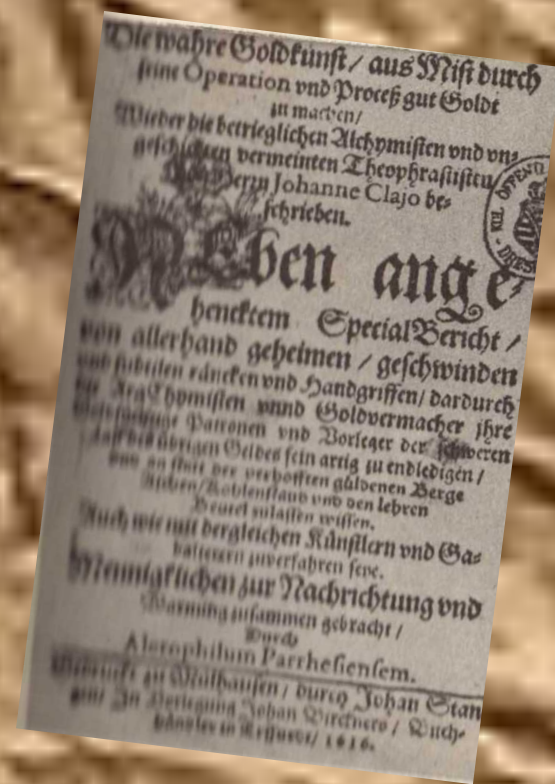 Die wahre Goldkunst / aus Mist durch
seine Operation vnd Proceß gut Goldt
zu machen /
Wieder die betrieglichen Alchymisten vnd vn⸗
geschickten vermeinten Theophrastisten
Herrn Johanne Clajo be⸗
schrieben.
Neben ange⸗
hencktem Special Bericht /
von allerhand geheimen / geschwinden
vnd subtilen räncken vnd Handgriffen / dardurch
die ArgChymisten vnnd Goldvermacher jhre
Patronen vnd Vorleger der schweren
Last des übrigen Geldes fein artig zu endledigen /
vnd an statt der verhofften güldenen Berge
Aschen / Kohlenstaub vnd den lehren
Beutel zulassen wissen.
Auch wie mit dergleichen Künstlern vnd Ga⸗
zuverfahren seye.
Menniglichen zur Nachrichtung vnd
Warnung zusammen gebracht /
Durch
Alethophilum Parrhesiensem.
Gedruckt zu Mülhausen / durch Johan Stan
In Verlegung Johan Birckners / Buch⸗
händler in Erffurdt / 1616.